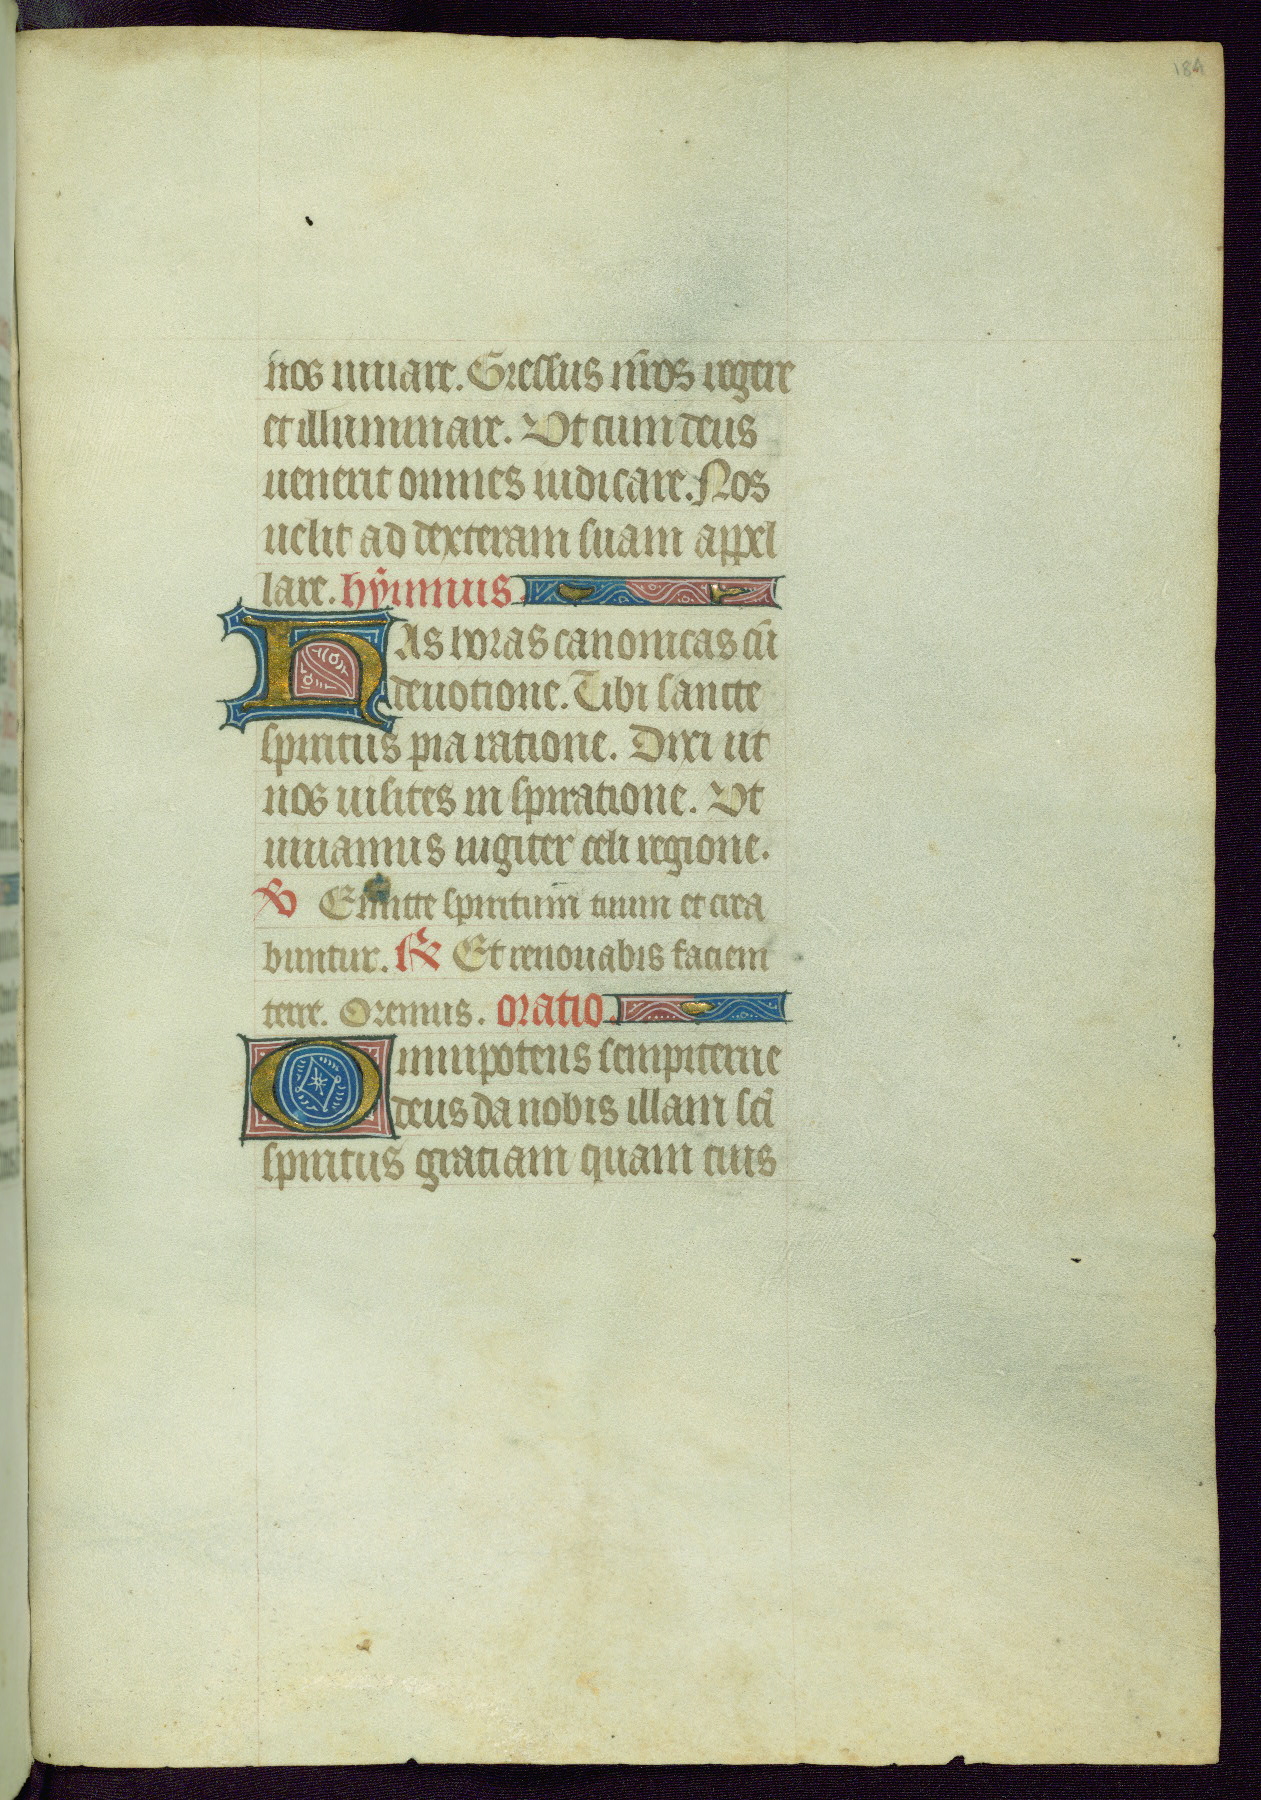 184
nos iuuare. Gressus nr̄os regere
et illuminare. Vt cum deus
uenerit omnes iudicare. Nos
uelit ad dexteram suam appel
lare. hȳmnus.
HAs horas canonicas cū
deuotione. Tibi sancte
spiritus pia ratione. Dixi ut
nos uisites inspiratione. Vt
uiuamus iugiter celi regione.
℣ Emitte spiritum̄ tuum et crea
buntur. ℟ Et renouabis faciem
terre. Oremus. oratio.
Omnipotens sempiterne
deus da nobis illam sc̄i
spiritus gratiam quam eius